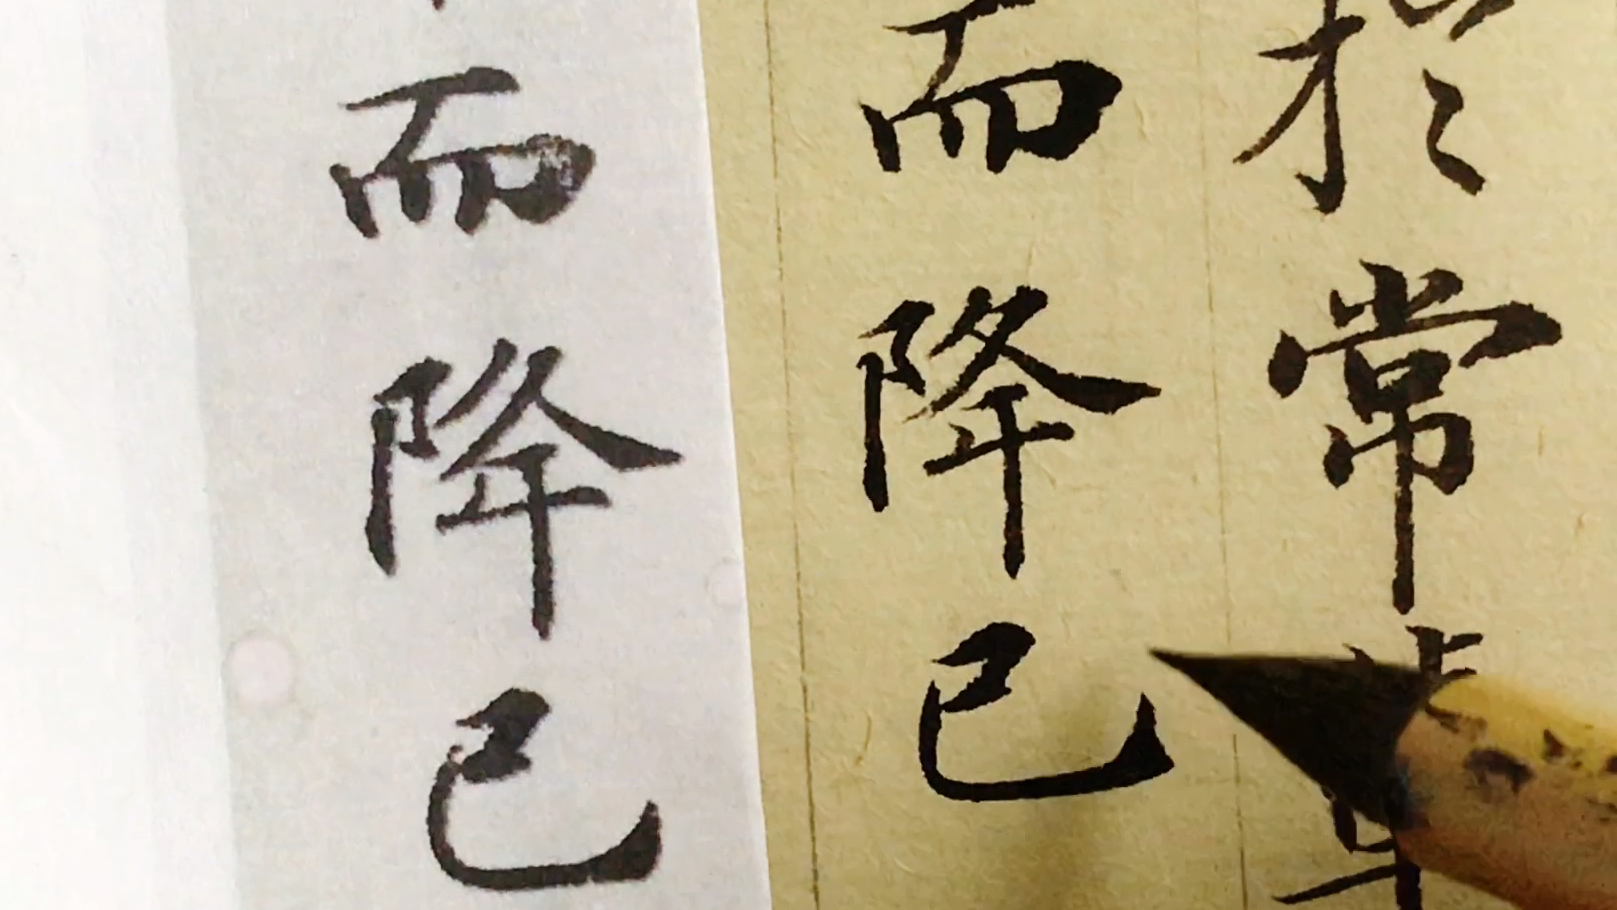 於常輩
而降已
而降已